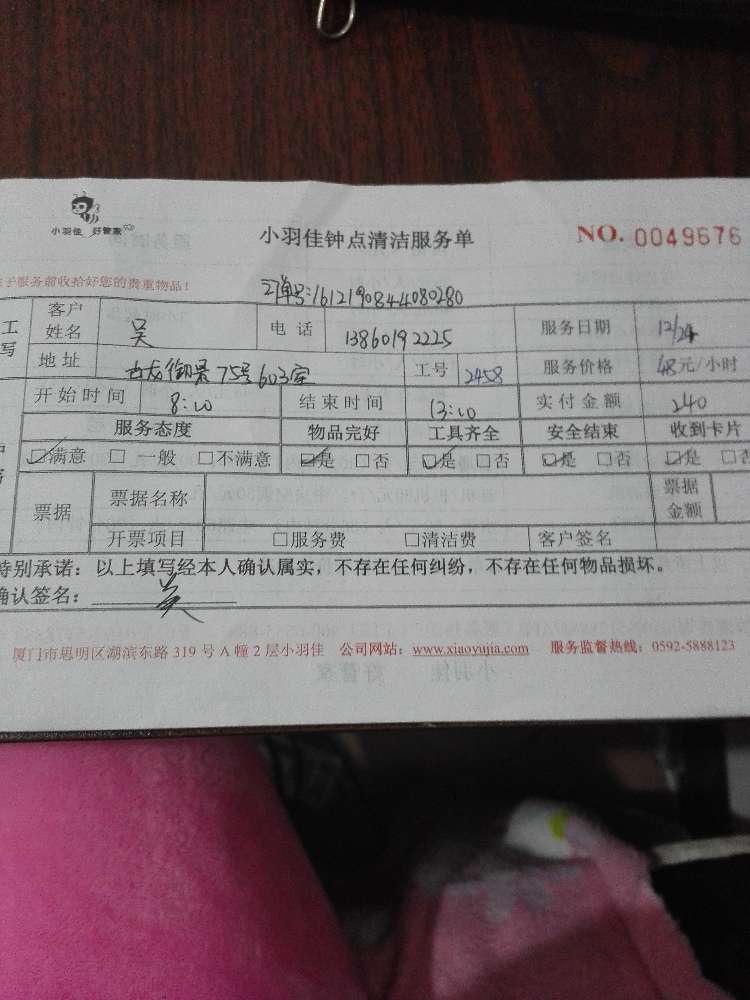 小羽佳 好管家
小羽佳钟点清洁服务单
NO. 0049676
子服务前收拾好您的贵重物品!
订单号:1612190844080280
工
写
客户姓名 吴 电话 13860192225 服务日期 12/24
地址 古龙御景75号603室 工号 2458 服务价格 48元/小时
开始时间 8:00 结束时间 13:00 实付金额 240
服务态度 物品完好 工具齐全 安全结束 收到卡片
☑满意 □一般 □不满意 ☑是 □否 ☑是 □否 ☑是 □否 ☑是 □否
票据 票据名称 票据金额
开票项目 □服务费 □清洁费 客户签名
特别承诺:以上填写经本人确认属实,不存在任何纠纷,不存在任何物品损坏。
确认签名: 吴
厦门市思明区湖滨东路 319 号 A 幢 2 层小羽佳 公司网站:www.xiaoyujia.com 服务监督热线:0592-5888123